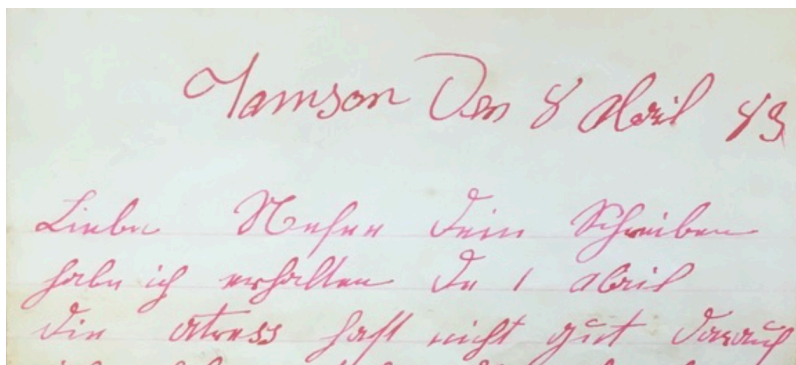 Jamson Den 8 Abril 83
Liebe Nefen dein Schreiben
habe ich erhalten De 1 Abril
die atress hast nicht gut darauf